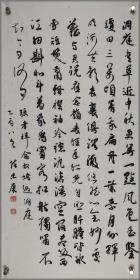 洞庭青草近中秋更無一點風色玉鑒
瓊田三萬頃著我扁舟一葉素月分輝
明河共影表裏俱澄澈悠然心會妙處
難與君說應念嶺海經年孤光自照肝膽皆冰
雪短髮蕭騷襟袖冷穩泛滄浪空闊盡挹
西江細斟北斗萬象為賓客扣舷獨嘯不
知今夕何夕
張孝祥念奴嬌過洞庭